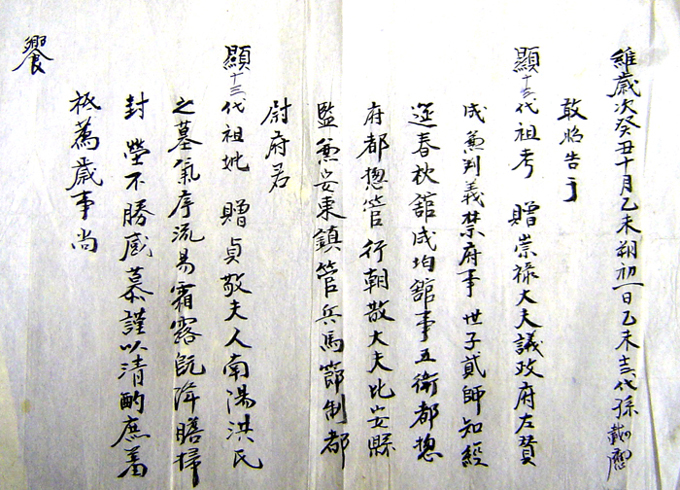 維歲次癸丑十月乙未朔初一日乙未十三代孫
敢昭告于
顯十三代祖考 贈崇祿大夫議政府左贊
成兼判義禁府事 世子貳師知經
筵春秋館成均館事五衛都摠
府都摠管行朝散大夫比安縣
監兼安東鎭管兵馬節制都
尉府君
顯十三代祖妣 贈貞敬夫人南陽洪氏
之墓氣序流易霜露旣降瞻掃
封塋不勝感慕謹以淸酌庶羞
祗薦歲事尙
饗